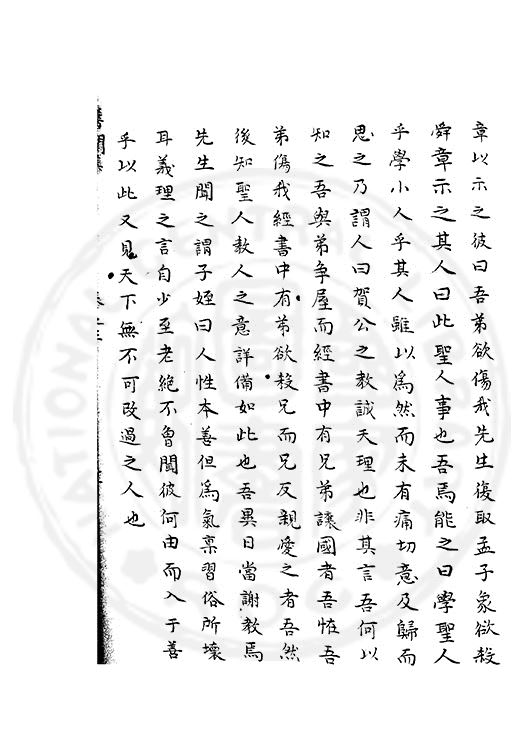 章以示之彼曰吾弟欲傷我先生復取孟子象欲殺
舜章示之其人曰此聖人事也吾焉能之曰學聖人
乎學小人乎其人雖以爲然而未有痛切意及歸而
思之乃謂人曰賀公之教誠天理也非其言吾何以
知之吾與弟争屋而經書中有兄弟讓國者吾恠吾
弟傷我經書中有弟欲殺兄而兄反親愛之者吾然
後知聖人教人之意詳備如此也吾異日當謝教焉
先生聞之謂子姪曰人性本善但爲氣禀習俗所壞
耳義理之言自少至老絶不魯聞彼何由而入于善
乎以此又見天下無不可改過之人也